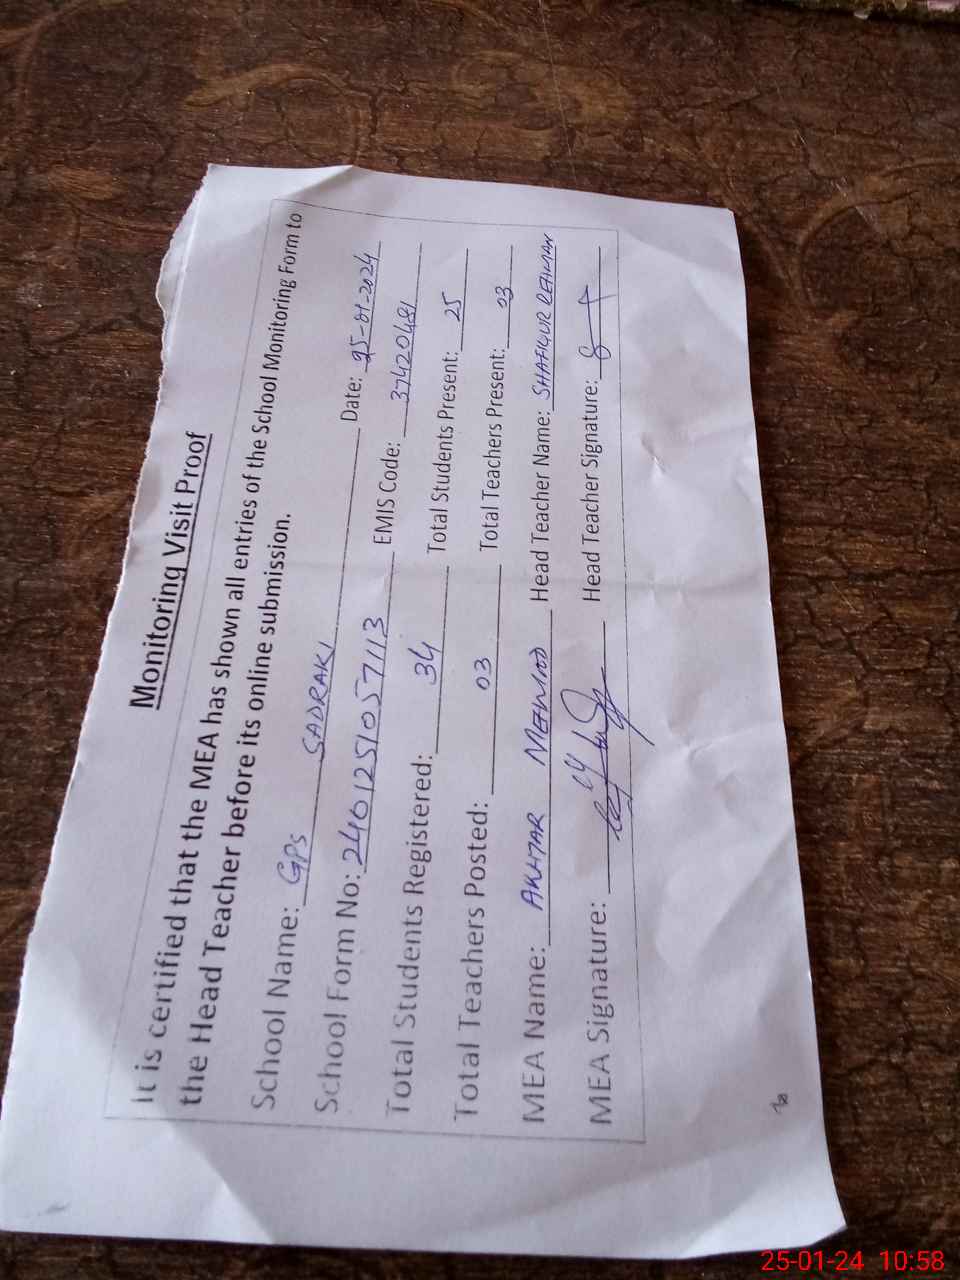 Monitoring Visit Proof
It is certified that the MEA has shown all entries of the School Monitoring Form to
the Head Teacher before its online submission.
School Name: GPS SADRAKI Date: 25-01-2024
School Form No: 2401251057113 EMIS Code: 37420481
Total Students Registered: 34 Total Students Present: 25
Total Teachers Posted: 03 Total Teachers Present: 03
MEA Name: AKHTAR MEHMOOD Head Teacher Name: SHAFIQUR REHMAN
MEA Signature: Head Teacher Signature:
25-01-24 10:58